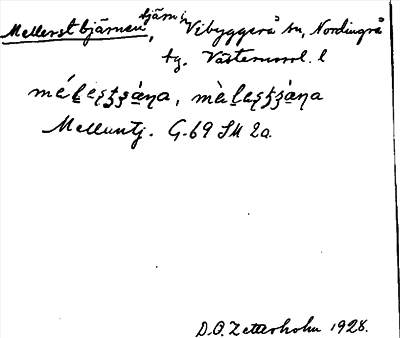 Mellerst tjärnen, tjärn i Vibyggerå sn, Nordingrå
tg. Västernorrl. l
Melluntj. G.69 SM 2a.
D.O. Zetterholm 1928.